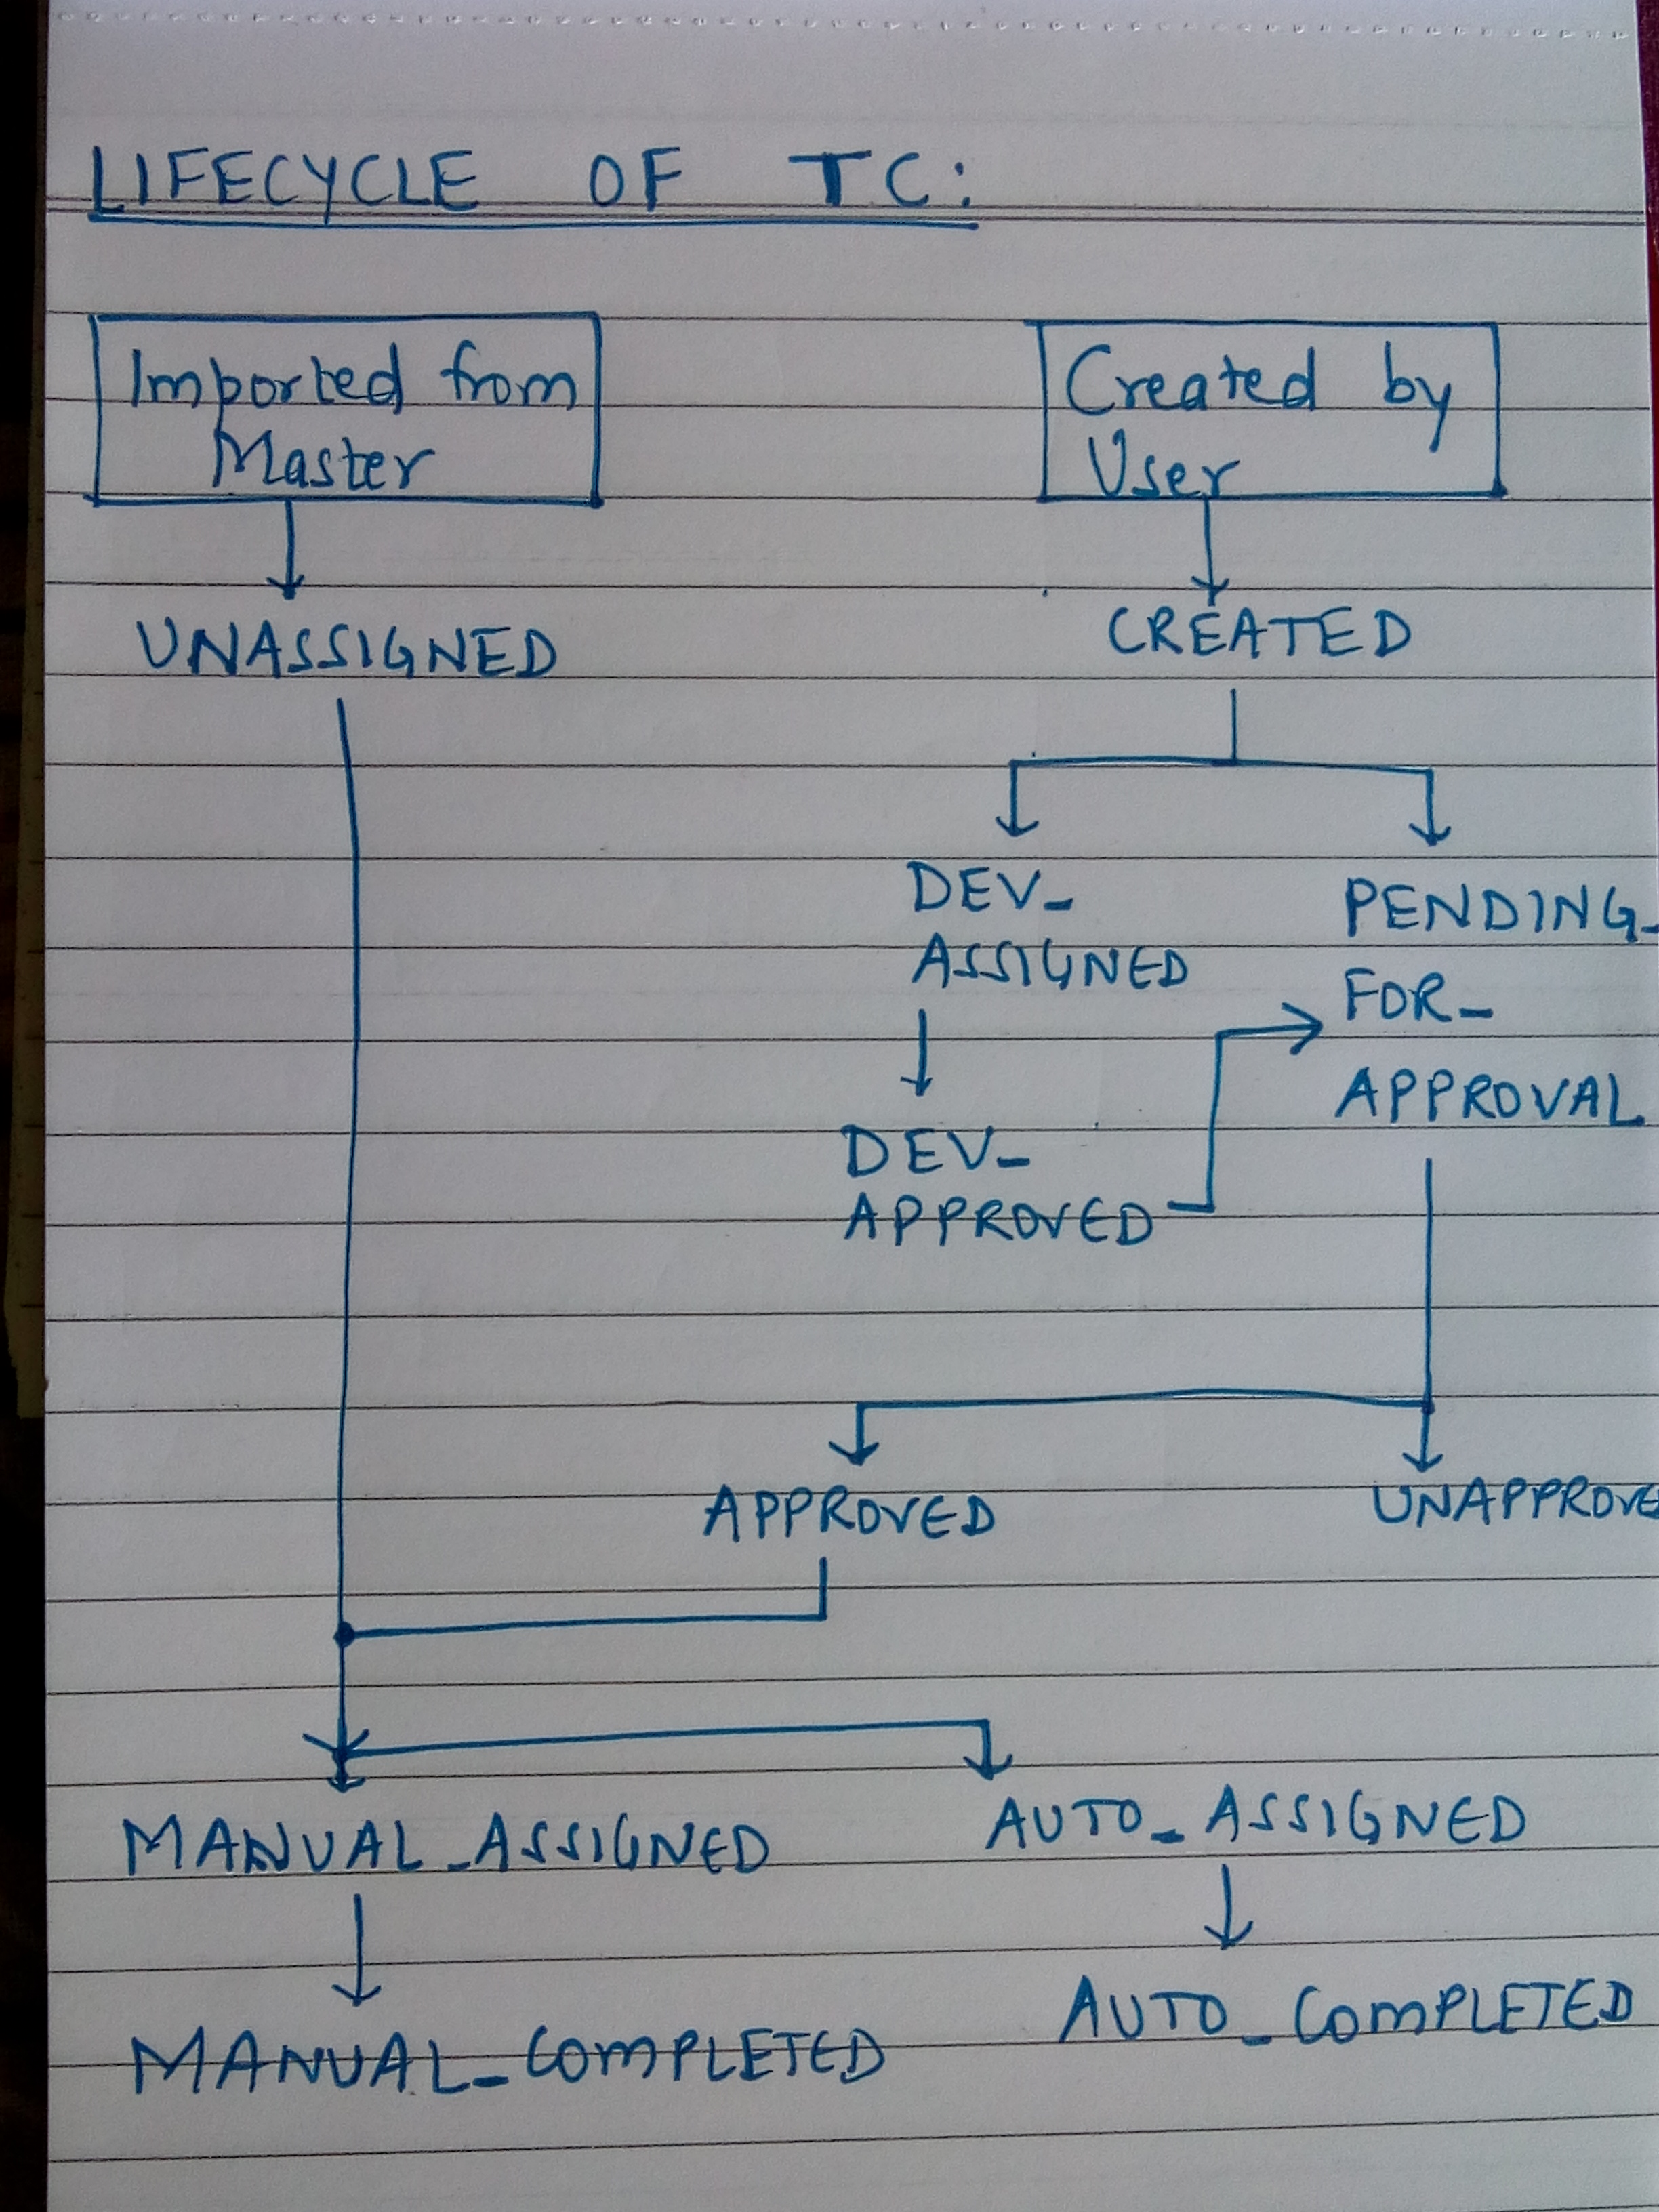 LIFECYCLE OF TC:
Imported from
Master
Created by
User
UNASSIGNED
CREATED
DEV_
ASSIGNED
PENDING_
FOR_
APPROVAL
DEV_
APPROVED
APPROVED
UNAPPROVE
MANUAL_ASSIGNED
AUTO_ASSIGNED
MANUAL_COMPLETED
AUTO_COMPLETED